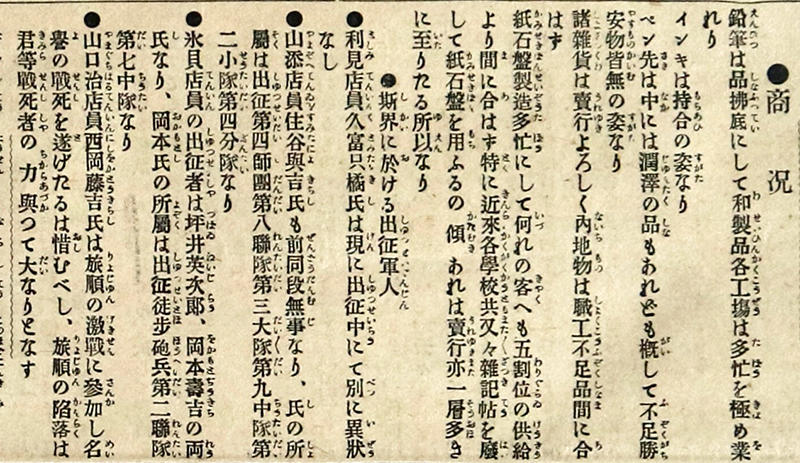 ●商況
鉛筆は品拂底にして和製品各工塲は多忙を極め業
れり
インキは持合の姿なり
ペン先は中には潤澤の品もあれども概して不足勝
安物皆無の姿なり
諸雜貨は賣行よろしく內地物は職工不足品間に合
はず
紙石盤製造多忙にして何れの客へも五割位の供給
より間に合はず特に近來各學校共又々雜記帖を廢
して紙石盤を用ふるの傾あれは賣行亦一層多き
に至りたる所以なり
●斯界に於ける出征軍人
●利見店員久富只橘氏は現に出征中にて別に異狀
なし
●山添店員住谷與吉氏も前同段無事なり、氏の所
屬は出征第四師團第八聯隊第三大隊第九中隊第
二小隊第四分隊なり
●氷貝店員の出征者は坪井英次郎、岡本壽吉の兩
氏なり、岡本氏の所屬は出征徒步砲兵第二聯隊
第七中隊なり
●山口治店員西岡藤吉氏は旅順の激戰に參加し名
譽の戰死を遂げたるは惜むべし、旅順の陷落は
君等戰死者の力與つて大なりとなす